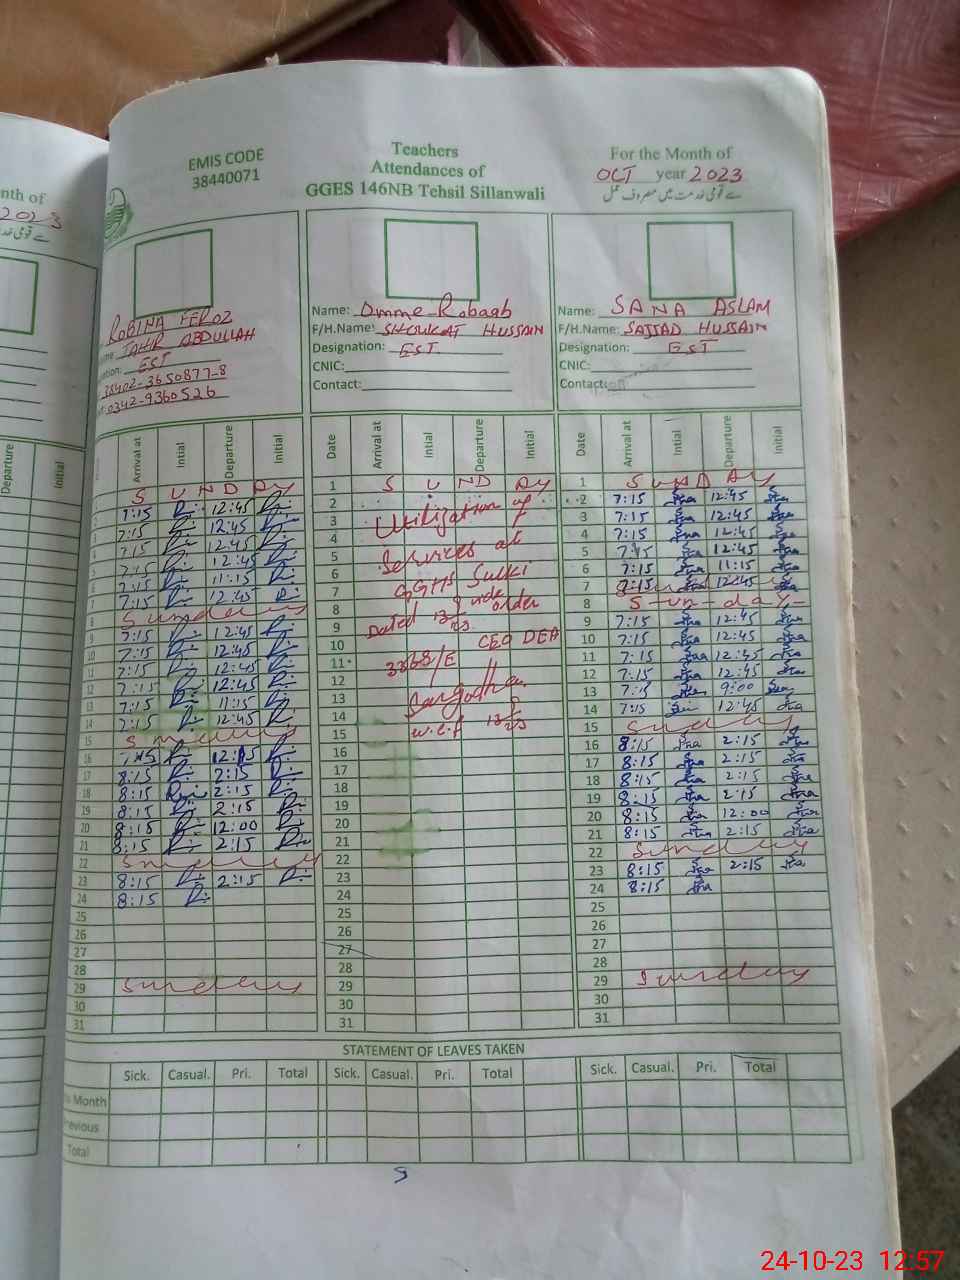 nth of
2023
Departure
Initial
EMIS CODE
38440071
Teachers
Attendances of
GGES 146NB Tehsil Sillanwali
For the Month of
OCT year 2023
سے قومی خدمت میں مصروف عمل
ROBINA FEROZ
TAHIR ABDULLAH
EST
38402-3650877-8
0342-9360526
Name: Omme Robaab
F/H.Name: SHOUKAT HUSSAIN
Designation: EST
CNIC:
Contact:
Name: SANA ASLAM
F/H.Name: SAJJAD HUSSAIN
Designation: EST
CNIC:
Contact:
Arrival at Intial Departure Initial
SUNDAY
7:15 12:45
7:15 12:45
7:15 12:45
7:15 12:45
7:15 11:15
7:15 12:45
8 Sunday
9 7:15 12:45
10 7:15 12:45
11 7:15 12:45
12 7:15 12:45
13 7:15 11:15
14 7:15 12:45
15 Sunday
16
17 8:15 2:15
18 8:15 2:15
19 8:15 2:15
20 8:15 12:00
21 8:15 2:15
22 Sunday
23 8:15 2:15
24 8:15
25
26
27
28
29 Sunday
30
31
Date Arrival at Intial Departure Initial
1 SUNDAY
2
3 Utilization of
4
5 Services at
6
7 GGHS Sulki
8 vide order
9 Dated
10 CEO DEA
11 3368/E
12
13 Sargodha
14
15 w.e.f
16
17
18
19
20
21
22
23
24
25
26
27
28
29
30
31
Date Arrival at Intial Departure Initial
1 SUNDAY
2 7:15 12:45
3 7:15 12:45
4 7:15 12:45
5 7:15 12:45
6 7:15 11:15
7 7:15 12:45
8 S-un-day-
9 7:15 12:45
10 7:15 12:45
11 7:15 12:45
12 7:15 12:45
13 7:15 9:00
14 7:15 12:45
15 Sunday
16 8:15 2:15
17 8:15 2:15
18 8:15 2:15
19 8:15 2:15
20 8:15 12:00
21 8:15 2:15
22 Sunday
23 8:15 2:15
24 8:15
25
26
27
28
29 Sunday
30
31
STATEMENT OF LEAVES TAKEN
Sick. Casual. Pri. Total Sick. Casual. Pri. Total Sick. Casual. Pri. Total
Month
Previous
Total
24-10-23 12:57